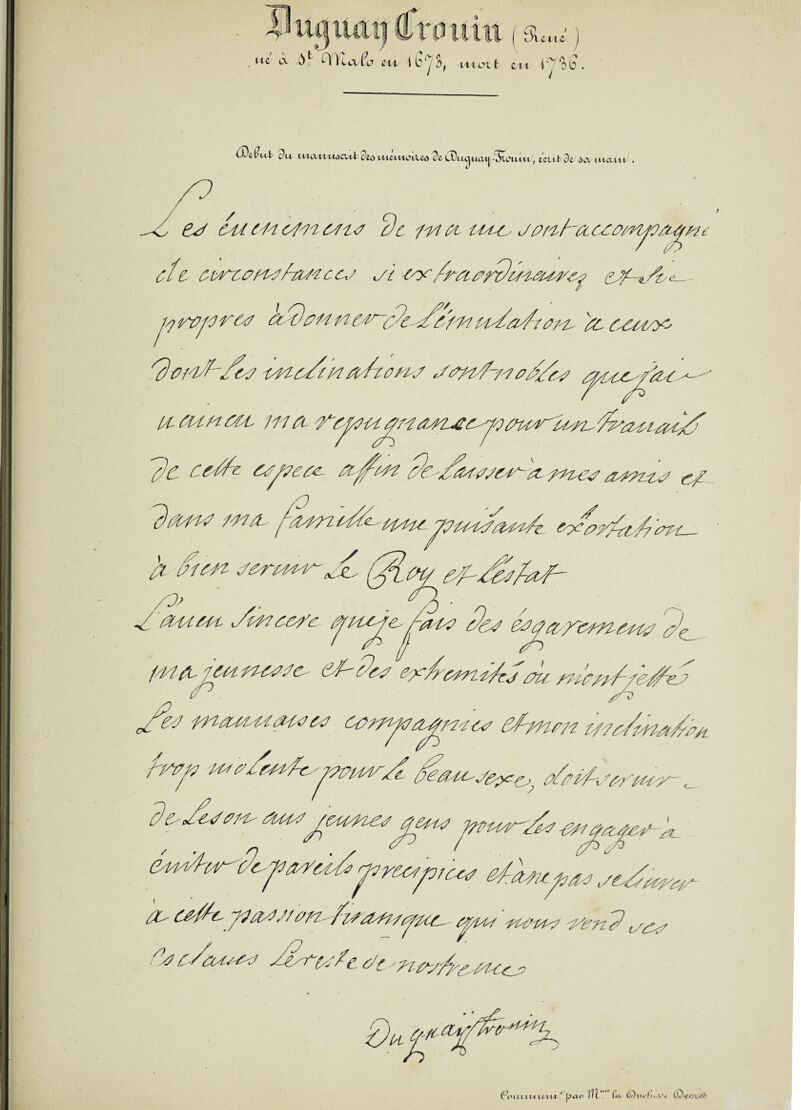 Duguay Trouin (René)
né à St Malo en 1673, mort en 1736.
Début du manuscrit des mémoires de Duguay-Trouin, écrit de sa main.
Les éuenemens de ma uie sont accompagné
de circonstances si extraordinaires et si
propres à donner de L'émulation à ceux
dont Les inclinations sont nobles que jai
uaincu ma repugnance pour un trauail
de cette espece affin de Laisser a mes amis et
dans ma famille une puisante exortation
à bien seruir Le Roy et L'éstat
L'aueu sincere que je fais des ésgaremens de
ma jeunesse et des extremités ou m'ont jetté
Les mauuaises compagnies et mon inclination
trop uiolente pour Le beau sexe, doit seruir
de Leson aus jeunes gens pour Les engager à
éuiter de pareils precipices et à ne pas se Liurer
à cette passion tiranique qui nous rend ses
esclaues Le reste de nostre uie
Duguaÿ trouin
par Mme la Duchesse Decrès